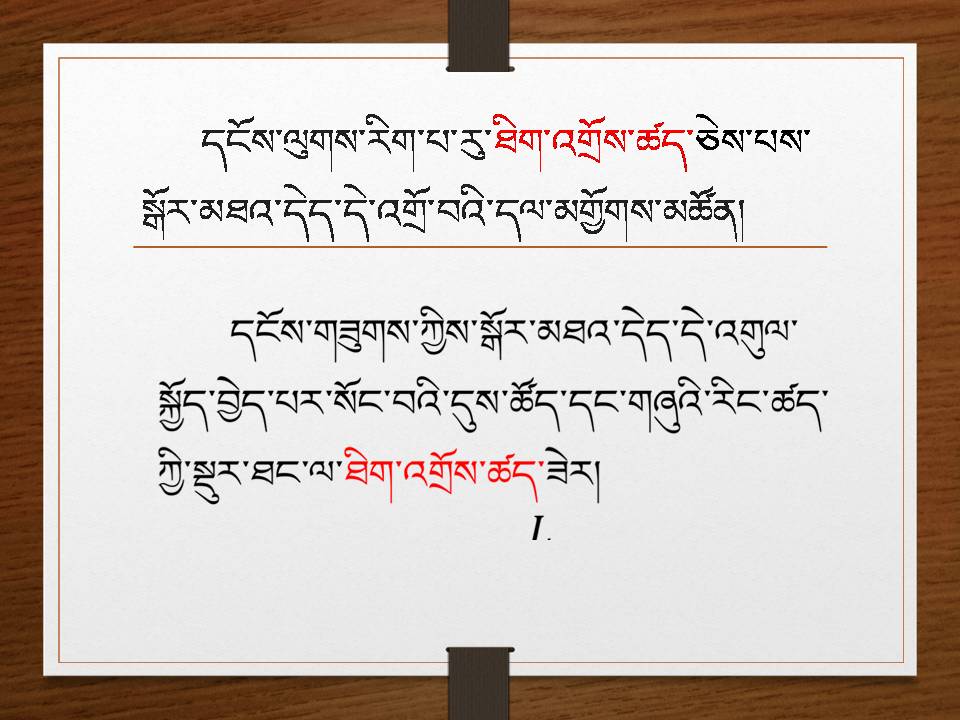 དངོས་ལུགས་རིག་པ་རུ་ཐིག་འགྲོས་ཚད་ཅེས་པས་
སྒོར་མཐའ་དེད་དེ་འགྲོ་བའི་དལ་མགྱོགས་མཚོན།
དངོས་གཟུགས་ཀྱིས་སྒོར་མཐའ་དེད་དེ་འགུལ་
སྐྱོད་བྱེད་པར་སོང་བའི་དུས་ཚོད་དང་གཞུའི་རིང་ཚད་
ཀྱི་སྡུར་ཐང་ལ་ཐིག་འགྲོས་ཚད་ཟེར།